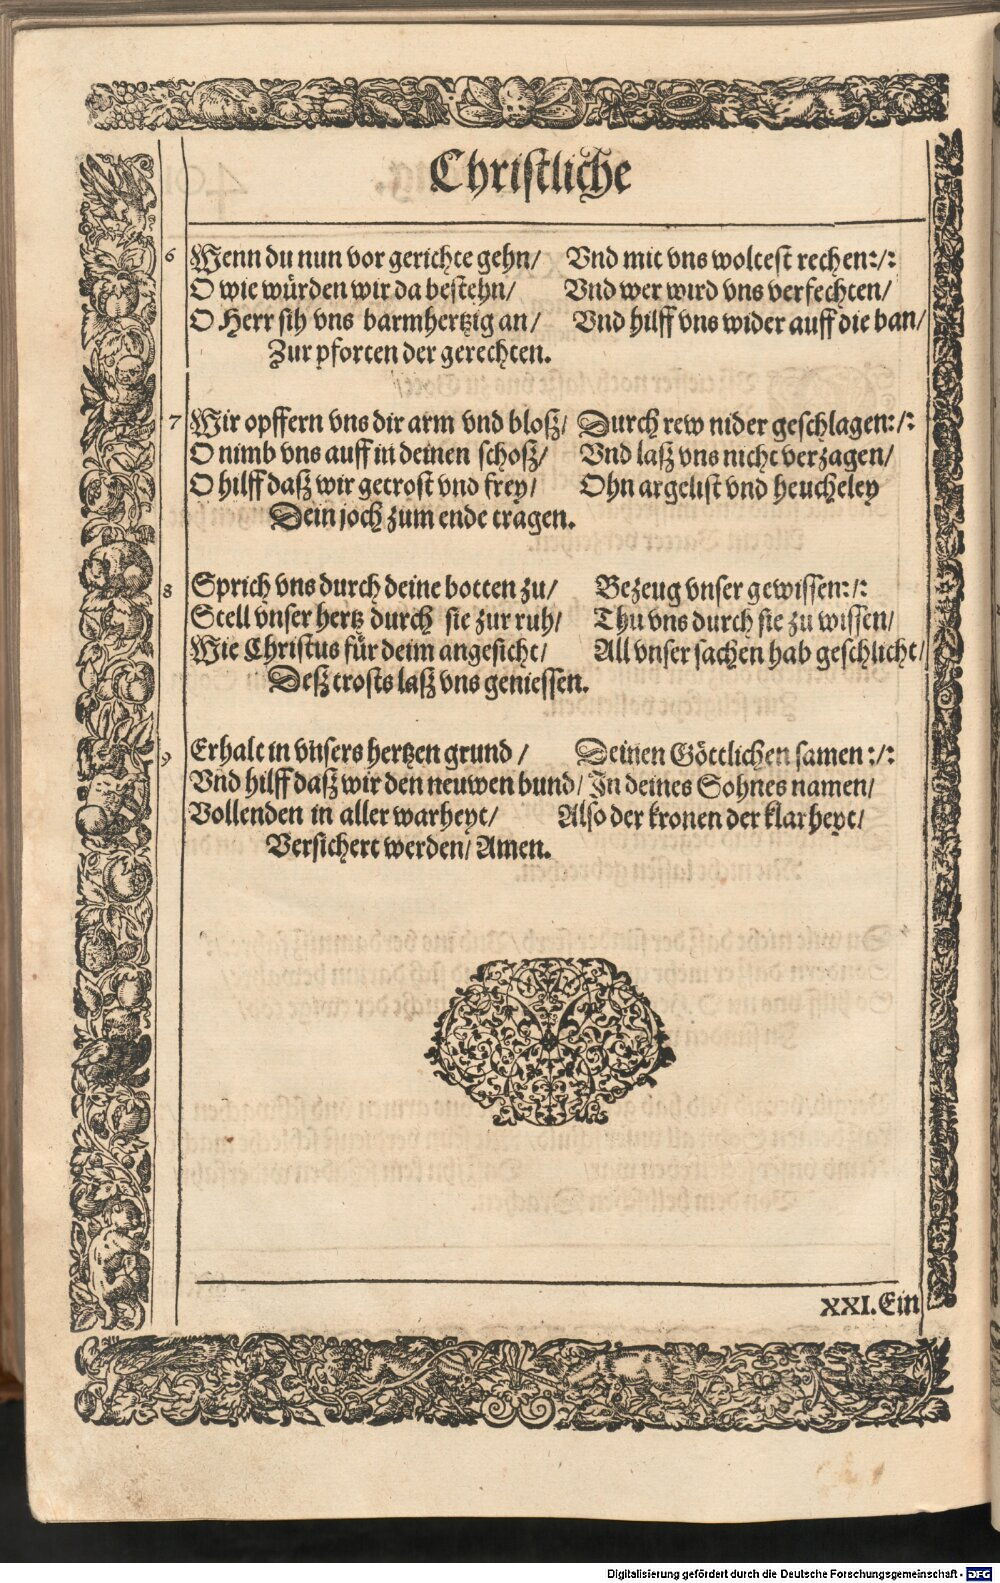 Christliche
6 Wenn du nun vor gerichte gehn/ Vnd mit vns woltest rechen:/:
O wie würden wir da bestehn/ Vnd wer wird vns verfechten/
O Herr sih vns barmhertzig an/ Vnd hilff vns wider auff die ban/
Zur pforten der gerechten.
7 Wir opffern vns dir arm vnd bloß/ Durch rew nider geschlagen:/:
O nimb vns auff in deinen schoß/ Vnd laß vns nicht verzagen/
O hilff daß wir getrost vnd frey/ Ohn argelist vnd heucheley
Dein joch zum ende tragen.
8 Sprich vns durch deine botten zu/ Bezeug vnser gewissen:/:
Stell vnser hertz durch sie zur ruh/ Thu vns durch sie zu wissen/
Wie Christus für deim angesicht/ All vnser sachen hab geschlicht/
Deß trosts laß vns geniessen.
9 Erhalt in vnsers hertzen grund / Deinen Göttlichen samen :/:
Vnd hilff daß wir den neuwen bund/ In deines Sohnes namen/
Vollenden in aller warheyt/ Also der kronen der klarheyt/
Versichert werden/ Amen.
XXI. Ein
Digitalisierung gefördert durch die Deutsche Forschungsgemeinschaft - DFG